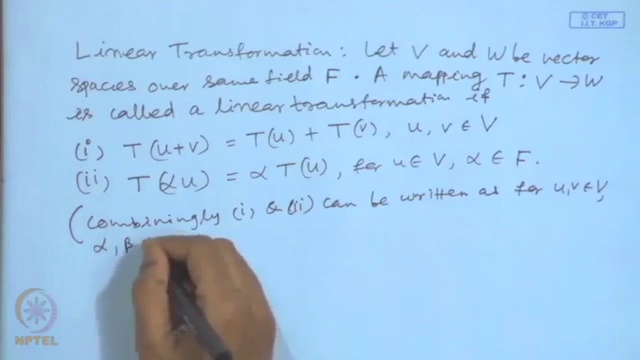 © CET
I.I.T. KGP
Linear Transformation: Let V and W be vector
spaces over same field F. A mapping T: V → W
is called a linear transformation if
(i) T(u+v) = T(u) + T(v), u, v ∈ V
(ii) T(αu) = α T(u), for u ∈ V, α ∈ F.
(Combiningly (i) & (ii) can be written as for u, v ∈ V,
α, β
NPTEL